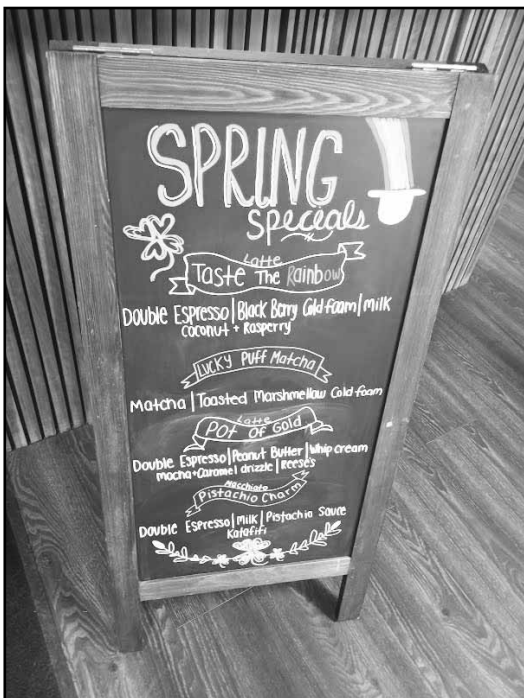 SPRING
Specials
Latte
Taste The Rainbow
Double Espresso | Black Berry Cold foam | milk
coconut + Rasperry
Lucky Puff Matcha
Matcha | Toasted Marshmellow Cold foam
Latte
Pot Of Gold
Double Espresso | Peanut Butter | Whip cream
mocha + Caramel drizzle | Reese's
Macchiato
Pistachio Charm
Double Espresso | Milk | Pistachio Sauce
Katafiti